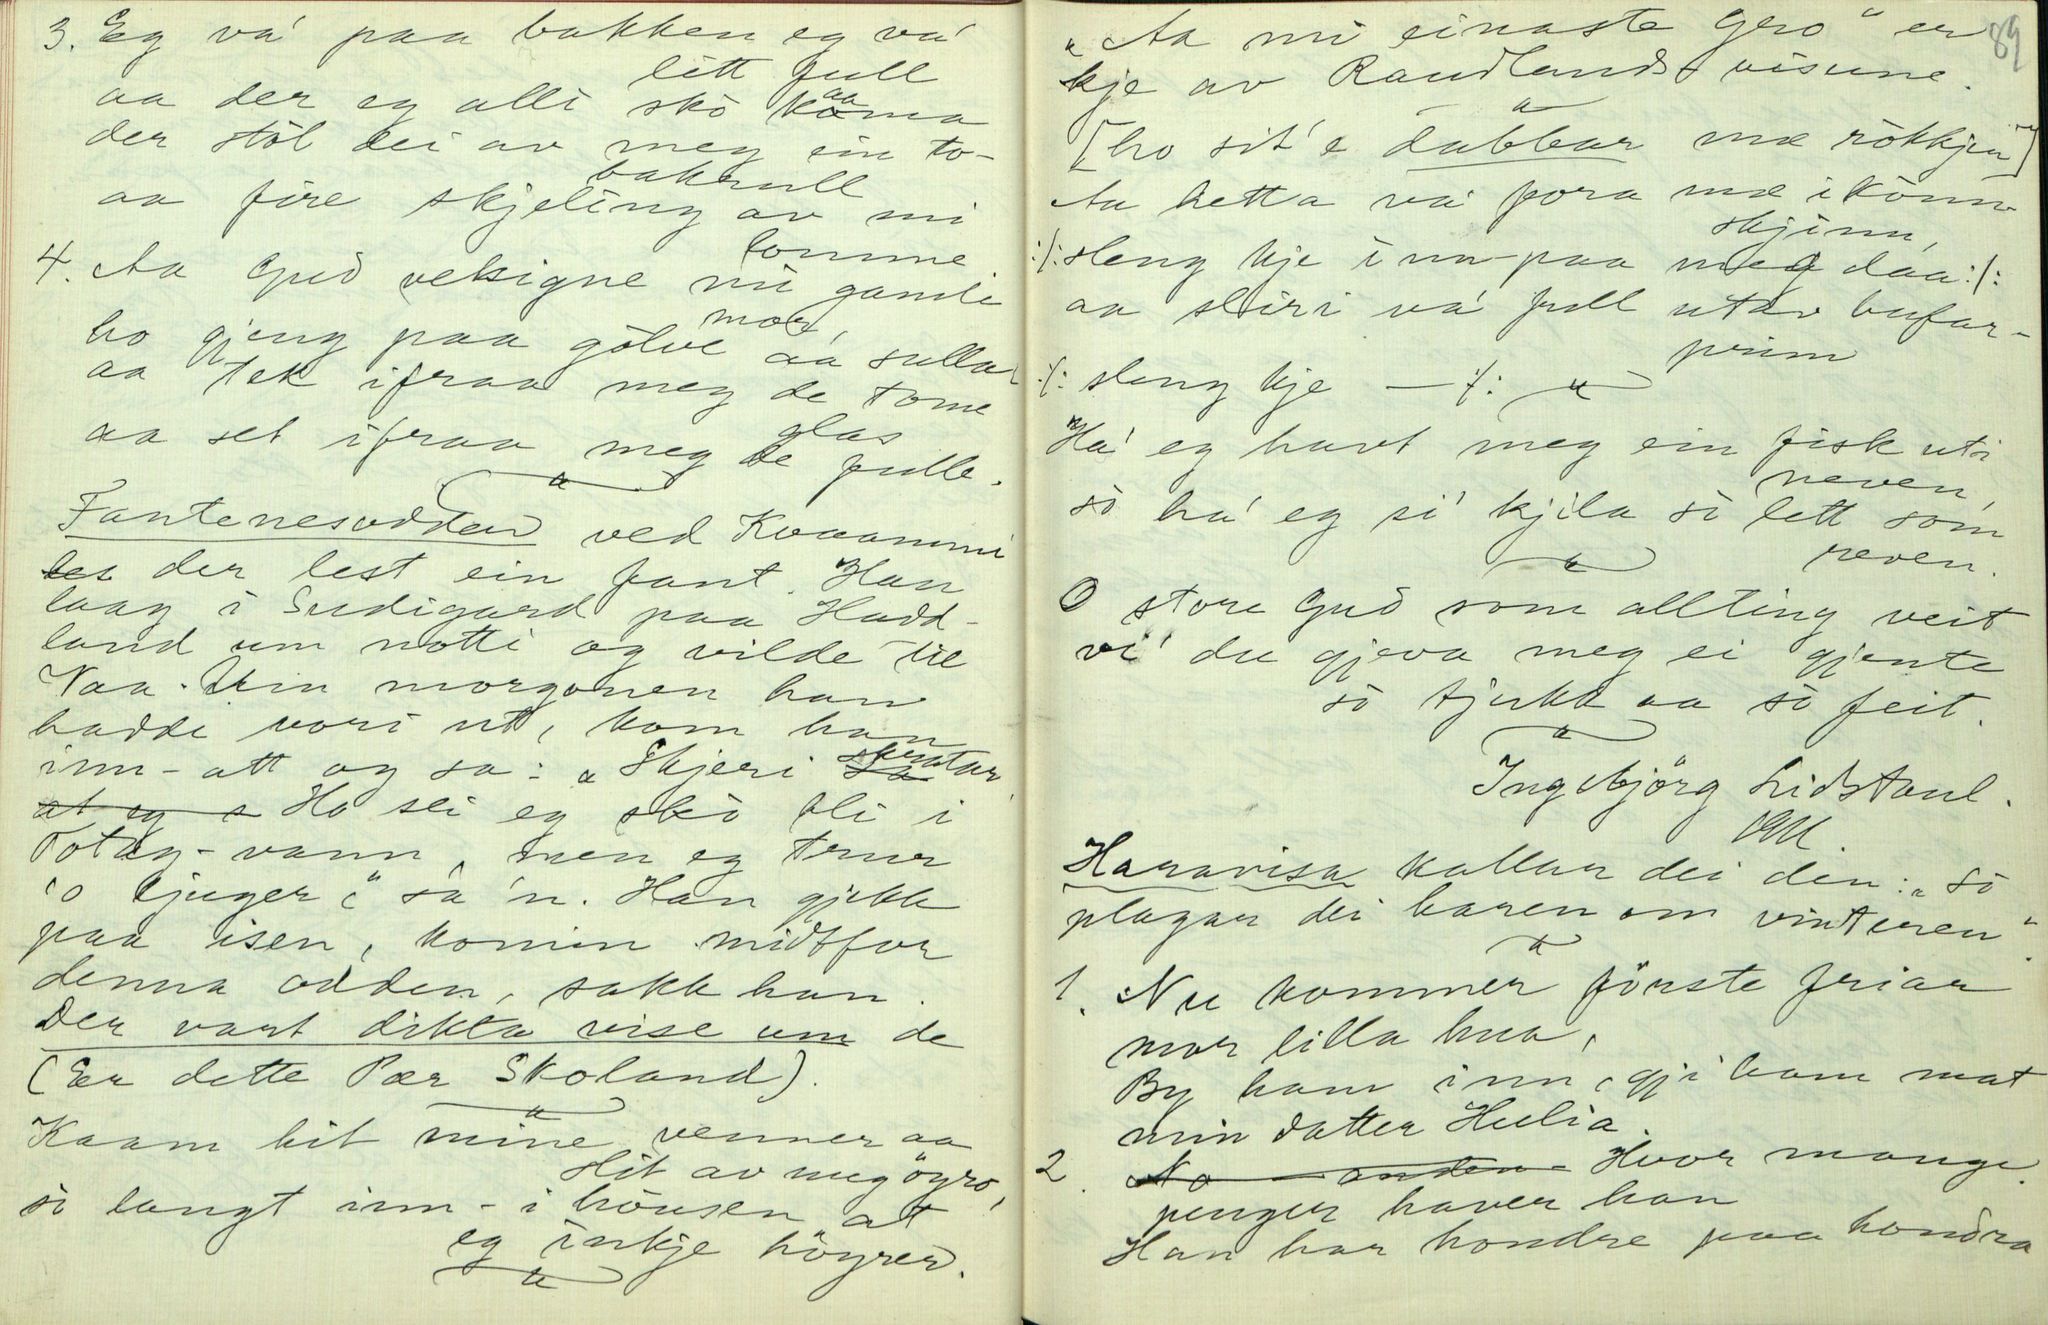 3. Eg va' paa bakken eg va'
litt full
aa der eg alli sko koma
aa
der stòl dei av meg ein to-
bakrull
aa fire skjeling av mi
lomme.
4. Aa Gud velsigne mi gamli
mor,
ho gjeng paa gòlve aa sullar
aa tek ifraa meg de tome
glas
aa set ifraa meg de fulle.
Fantenesodden ved Kvaammi
der lest ein fant. Han
laag i Sudigard paa Hadd-
land um notti og vilde til
Naa. Um morgonen han
haddi vori ut, kom han
inn-att og sa: „Skjeri skvatar
at eg s Ho sei eg sko bli i
Totak-vann, men eg trur
'o ljuger," sa 'n. Han gjekk
paa isen, komin midtfor
denna odden, sakk han.
Der vart dikta vise um de
(Er dette Pær Skoland).
Kaam hit mine venner aa
slit av meg öyro,
so langt inn-i hausen at
eg inkje höyrer.
89
„Aa mi einaste Gro" er
kje av Raudlands-visune.
[ho sit'e dabbar mæ rokkjen]
Aa detta va' fora mæ ikonn-
skjinn,
:/: sleng kje inn-paa meg daa :/:
aa sliri va' full utav bufar-
prim
:/: sleng kje — :/:
Ha' eg havt meg ein fisk uti
neven,
so ha' eg si' kjila so lett som
reven.
O store Gud som allting veit
vi' du gjeva meg ei gjente
so tjukk aa so feit.
Ingebjörg Lidstaul.
Haravisa kallar dei den: „So
plagar dei haren om vinteren".
1. Nu kommer förste friar
mor lilla hua,
By ham inn, gji ham mat
min datter Hulia.
2. No anden Hvor mange
penger haver han
Han har hondre paa hondra